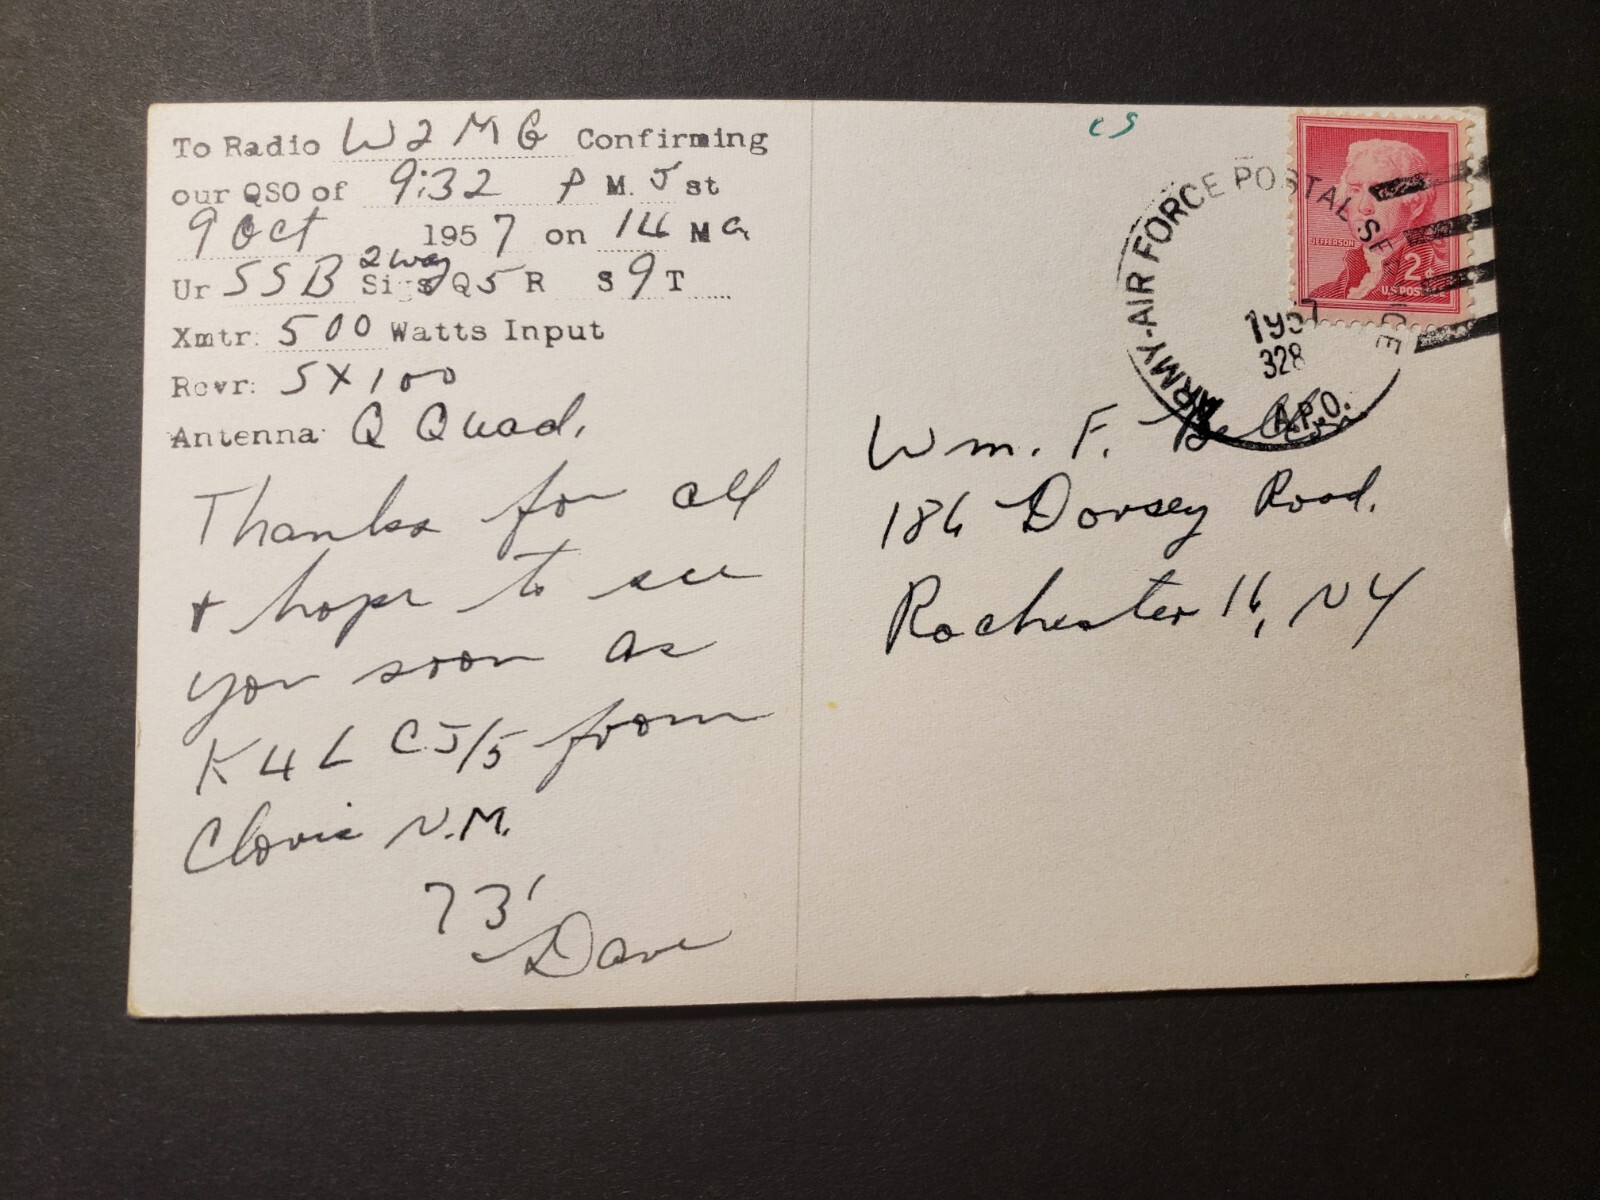 To Radio W2MG Confirming
our QSO of 9:32 P M. J st
9 Oct 1957 on 14 Mc
Ur SSB 2 way Sigs Q 5 R S 9 T
Xmtr: 500 Watts Input
Rcvr: SX100
Antenna: Q Quad.
Thanks for all
+ hope to see
you soon as
K4LCJ/5 from
Clovis N.M.
73'
Dave
CS
ARMY-AIR FORCE POSTAL SERVICE
1957
328
A.P.O.
JEFFERSON
2¢
U.S. POSTAGE
Wm. F.
186 Dorsey Road.
Rochester 16, NY